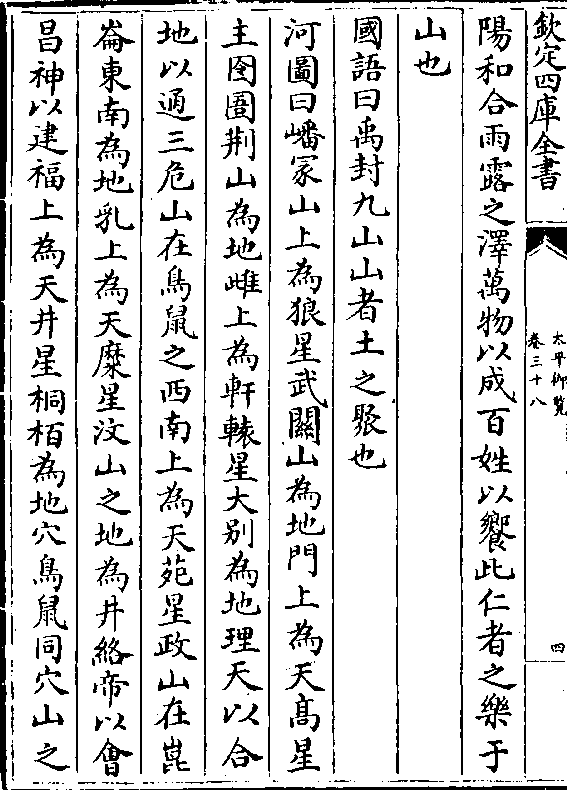 欽定四庫全書
太平御覽
卷三十八
四
陽和合雨露之澤萬物以成百姓以饗此仁者之樂于
山也
國語曰禹封九山山者土之聚也
河圖曰嶓冢山上為狼星武關山為地門上為天高星
主囹圄荆山為地雌上為軒轅星大别為地理天以合
地以通三危山在鳥鼠之西南上為天苑星政山在崑
崙東南為地乳上為天糜星汶山之地為井絡帝以會
昌神以建福上為天井星桐栢為地穴鳥鼠同穴山之